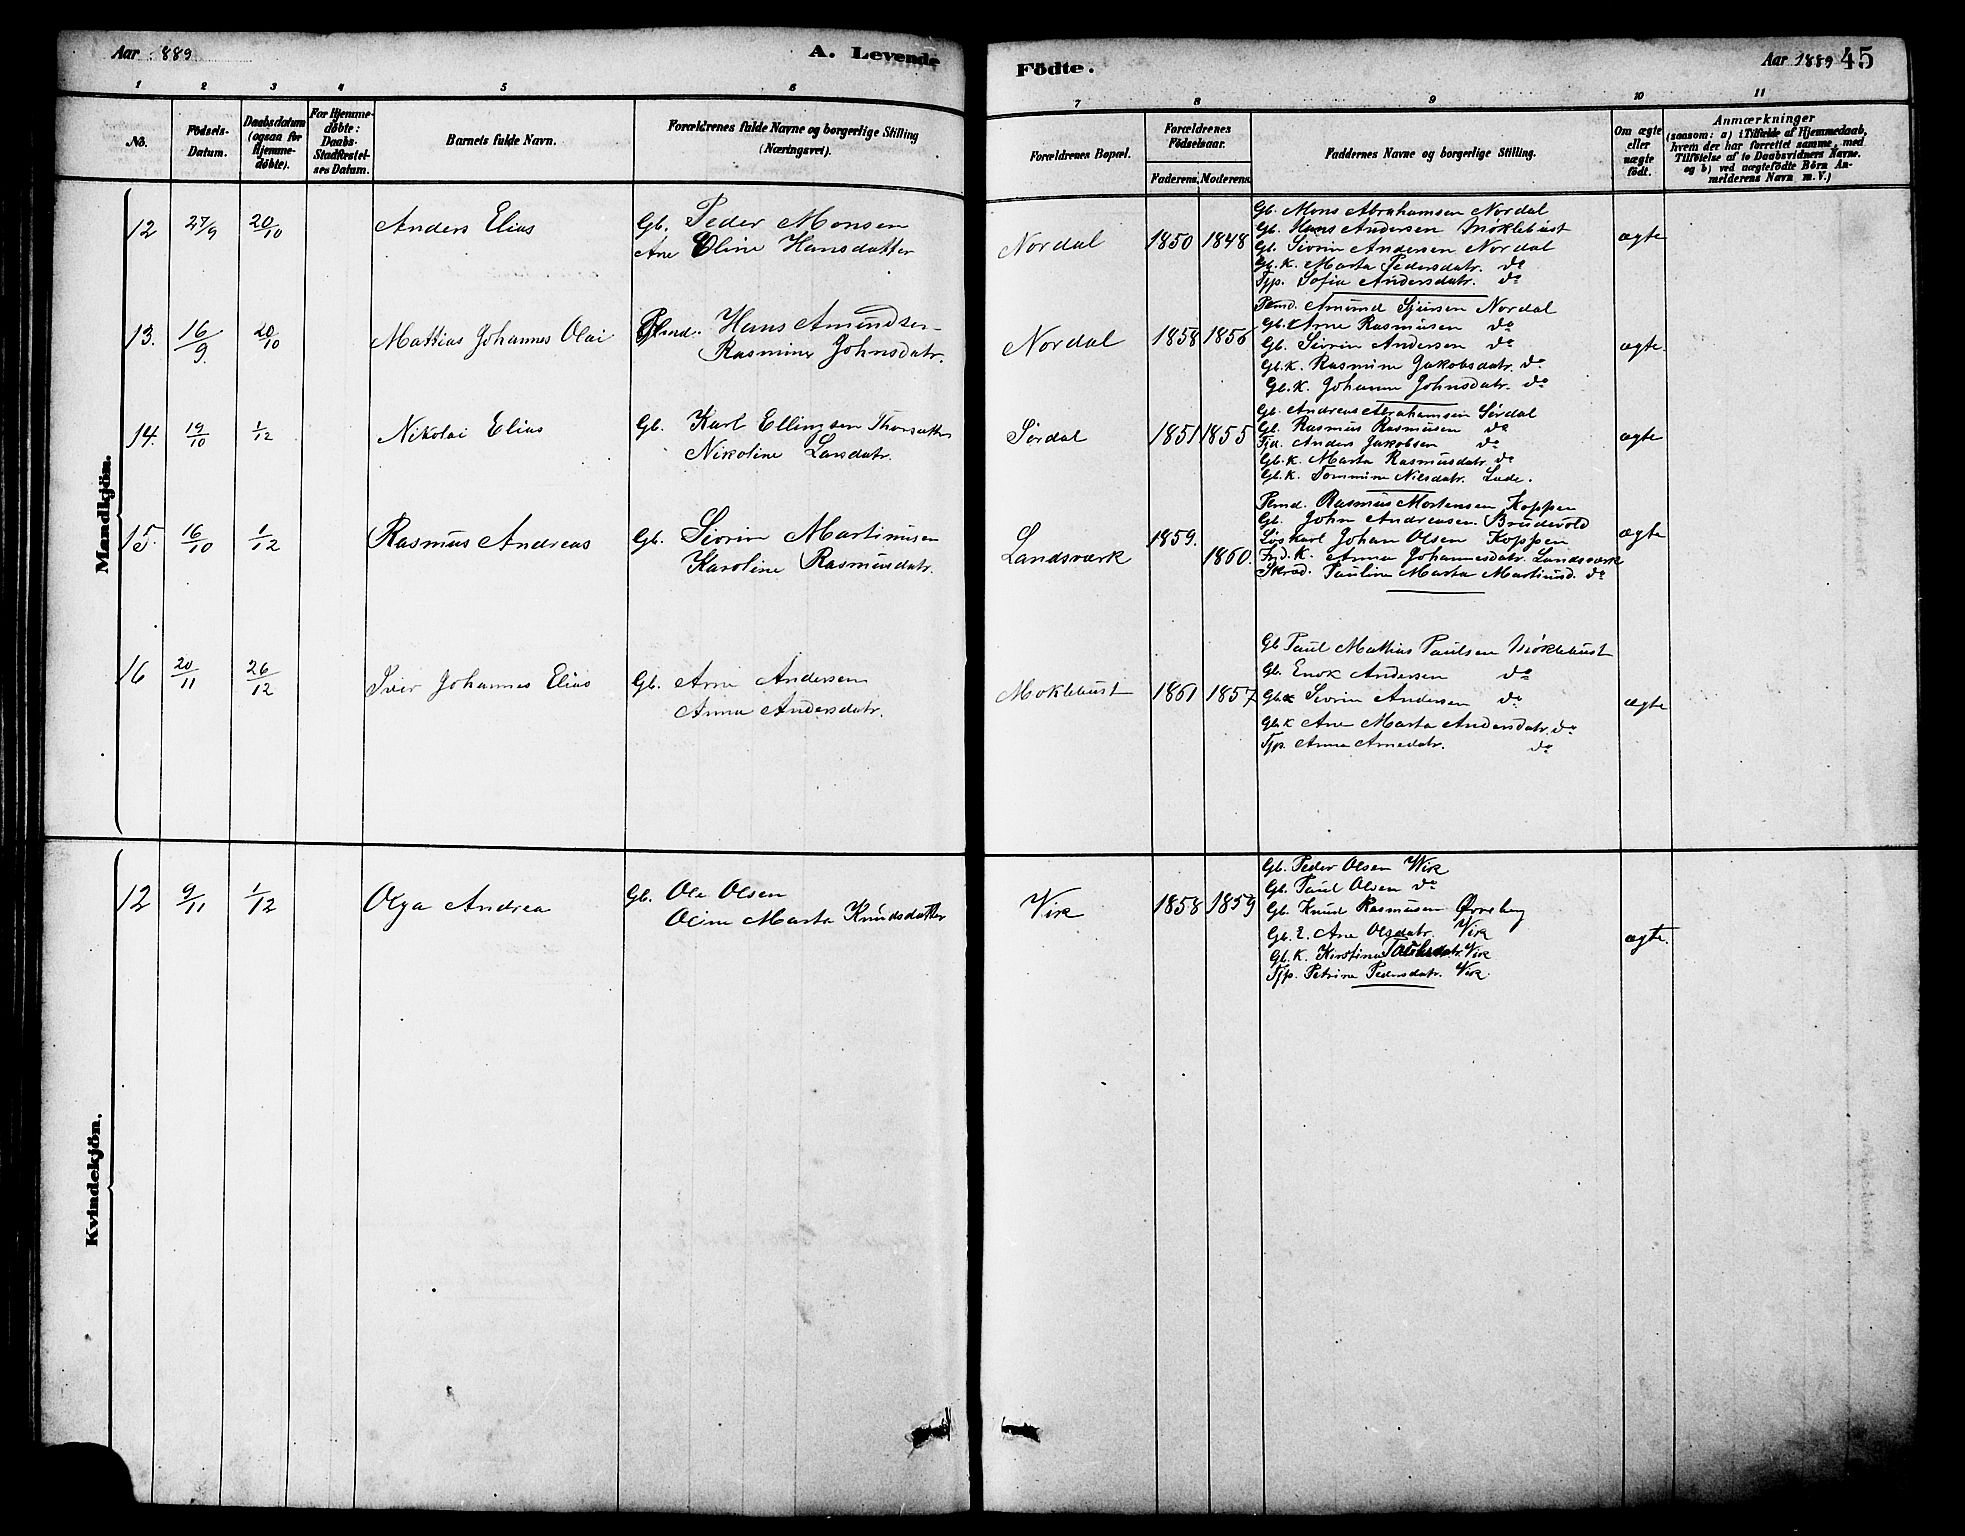 Aar 1889
A. Levende
Födte.
Aar 1889 45
1 2 3 4 5 6
7 8 9 10 11
No.
Födsels-
Datum.
Daabsdatum
(ogsaa for
Hjemme-
døbte).
For Hjemme-
døbte:
Daabs-
Stadfæstel-
ses Datum.
Barnets fulde Navn.
Forældrenes fulde Navne og borgerlige Stilling
(Næringsvei).
Forældrenes Bopæl.
Forældrenes
Födselsaar.
Faderens. Moderens.
Faddernes Navne og borgerlige Stilling.
Om ægte
eller
uægte
födt.
Anmærkninger
(saasom: a) i Tilfælde af Hjemmedaab,
hvem der har forrettet samme, med
Tilföielse af to Daabsvidners Navne.
og b) ved uægtefödte Börn An-
melderens Navn m. V.)
Mandkjön.
12 27/9 20/10 Anders Elias
Gb. Peder Monsen
Ane Oline Hansdatter
Nordal 1850 1848
Gb. Mons Abrahamsen Nordal
Gb. Hans Andersen Møklebust
Gb. Sivrin Andersen Nordal
Gb. K. Marta Pedersdatr. do
Tjp. Sofia Andersdatr. do
ægte
13. 16/9 20/10 Mattias Johannes Olai
Plmd. Hans Amundsen
Rasmine Johnsdatr.
Nordal 1858 1856
Pmd. Amund Sjursen Nordal
Gb. Arne Rasmusen do
Gb. Sivrin Andersen do
Gb. K. Rasmine Jakobsdatr. do
Gb. K. Johanne Johnsdatr. do
ægte.
14. 19/10 1/12 Nikolai Elias
Gb. Karl Ellingsen
Nikoline Larsdatr.
Sørdal 1851 1855
Gb. Andreas Abrahamsen Sørdal
Gb. Rasmus Rasmusen do
Tjd. Anders Jakobsen do
Gb. K. Marta Rasmusdatr. do
Gb. K. Tommine Nilsdatr. Lade.
ægte
15. 16/10 1/12 Rasmus Andreas
Gb. Sivrin Martinusen
Karoline Rasmusdatr.
Landsværk 1859. 1860.
Pmd. Rasmus Mortensen Koppen
Gb. John Andreasen Brudevold
Løskarl Johan Olsen Koppen
Ind. K. Anna Johannesdatr. Landsværk
Pauline Marta Martinusd. do
ægte
16 20/11 26/12 Iver Johannes Elias
Gb. Arne Andersen
Anna Andersdatr.
Møklebust 1861 1857
Gb. Paul Mathias Paulsen Møklebust
Gb. Enok Andersen do
Gb. Sivrin Andersen do
Gb. K Ane Marta Andersdatr. do
Tjp. Anna Arnedatr. do
ægte
Kvindekjön.
12 9/11 1/12 Olga Andrea
Gb. Ole Olsen
Oline Marta Knudsdatter
Vik 1858 1859
Gb. Peder Olsen Vik
Gb. Paul Olsen do
Gb. Knud Rasmusen Øvreberg
Gb. E. Ane Olsdatr. Vik
Gb. K. Kirstine Vik
Tjp. Petrine Pedersdatr. Vik.
ægte.